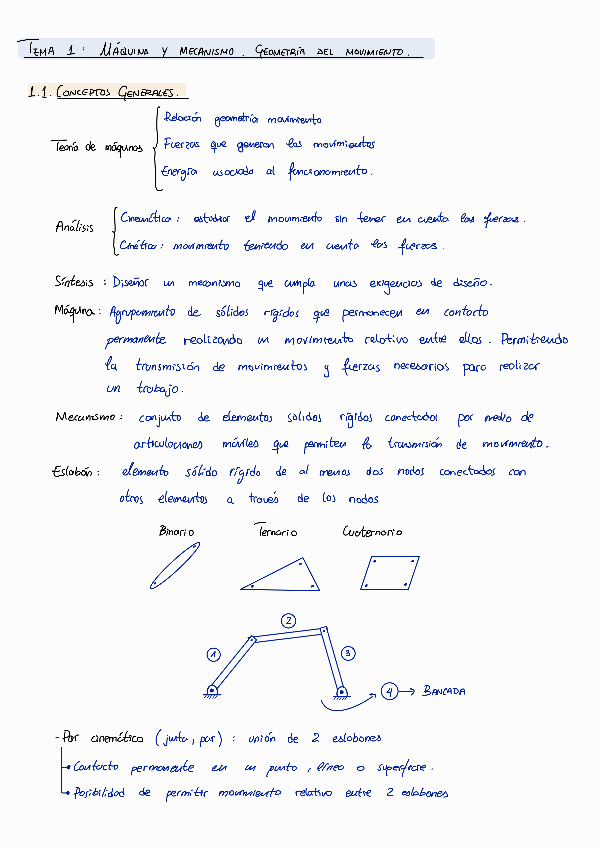 TEMA 1: MÁQUINA Y MECANISMO. GEOMETRÍA DEL MOVIMIENTO.
1.1. CONCEPTOS GENERALES.
Teoría de máquinas
Relación geometría movimiento
Fuerzas que generan los movimientos
Energía asociada al funcionamiento.
Análisis
Cinemática: estudiar el movimiento sin tener en cuenta las fuerzas.
Cinética: movimiento teniendo en cuenta las fuerzas.
Síntesis: Diseñar un mecanismo que cumpla unas exigencias de diseño.
Máquina: Agrupamiento de sólidos rígidos que permanecen en contacto
permanente realizando un movimiento relativo entre ellos. Permitiendo
la transmisión de movimientos y fuerzas necesarios para realizar
un trabajo.
Mecanismo: conjunto de elementos solidos rígidos conectados por medio de
articulaciones móviles que permiten la transmisión de movimiento.
Eslabón: elemento sólido rígido de al menos dos nodos conectados con
otros elementos a través de los nodos
Binario Ternario Cuaternario
2
1 3
4 → BANCADA
- Par cinemático (junta, par): unión de 2 eslabones
Contacto permanente en un punto, línea o superficie.
Posibilidad de permitir movimiento relativo entre 2 eslabones